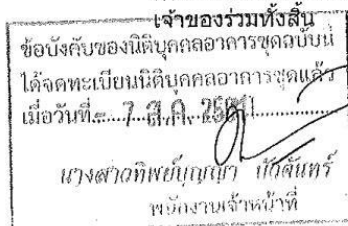 เจ้าของร่วมทั้งสิ้น
ข้อบังคับของนิติบุคคลอาคารชุดฉบับนี้
ได้จดทะเบียนนิติบุคคลอาคารชุดแล้ว
เมื่อวันที่ 7 มี.ค.
นางสาวทิพย์บุญญา บัวจันทร์
พนักงานเจ้าหน้าที่